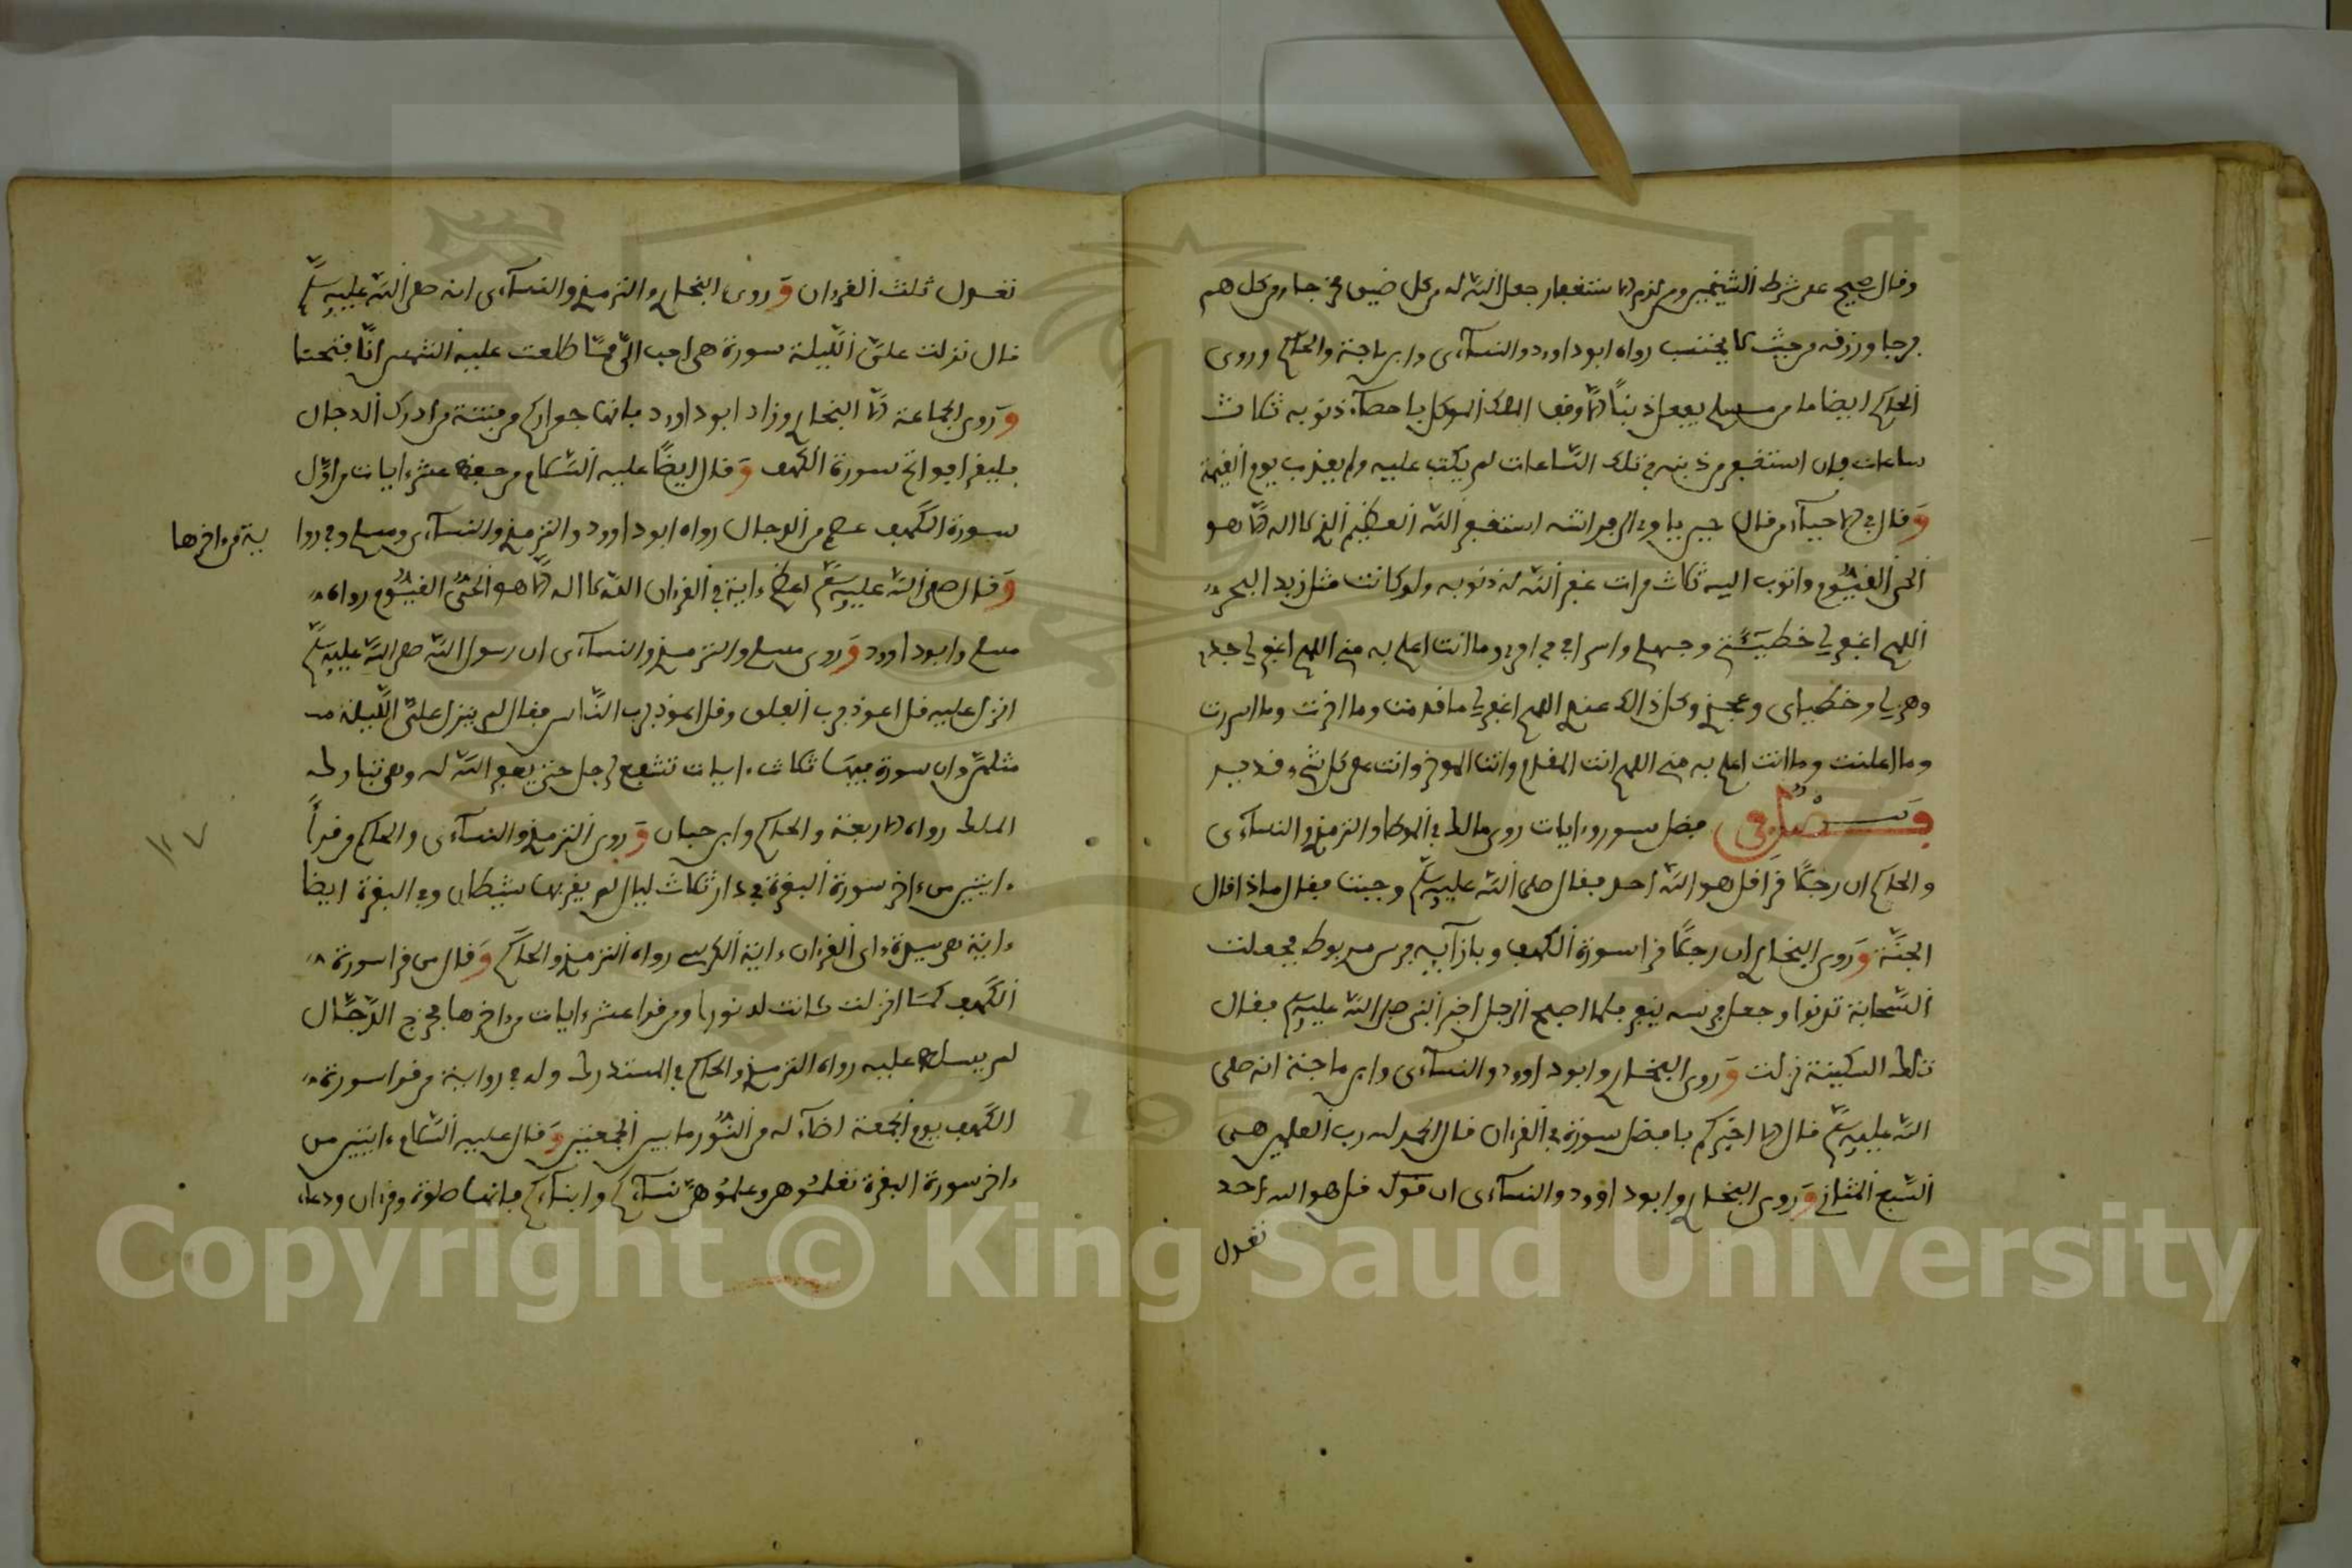 وقال صحيح على شرط الشيخين ومن لزم الاستغفار جعل الله له من كل ضيق مخرجا ومن كل هم
فرجا ورزقه من حيث لا يحتسب رواه ابوداوود والنسآءى وابن ماجة والحاكم وروى
الحاكم ايضا ما من مسلم يعمل ذنبا الا وقف الملك الموكل باحصآء ذنوبه ثلاث
ساعات فان استغفر من ذنبه في تلك الساعات لم يكتب عليه ولم يعذب يوم القيمة
وقال في الاحيآء من قال حين ياوي الى فراشه استغفر الله العظيم الذي لا اله الا هو
الحي القيوم واتوب اليه ثلاث مرات غفر الله له ذنوبه ولو كانت مثل زبد البحر
اللهم اغفر لي خطيئتي وجهلي واسرافي في امري وما انت اعلم به مني اللهم اغفر لي جدي
وهزلي وخطئي وعمدي وكل ذالك عندي اللهم اغفر لي ما قدمت وما اخرت وما اسررت
وما اعلنت وما انت اعلم به مني اللهم انت المقدم وانت الموخر وانت على كل شيء قدير
فصل في فضل سور وءايات روى مالك في الموطا والترمذي والنسآءى
والحاكم ان رجلا قرا قل هو الله احد فقال صلى الله عليه وسلم وجبت فقال ماذا قال
الجنة وروى البخاري ان رجلا قرا سورة الكهف وبازآيه فرس مربوط فجعلت
السحابة تدنوا وجعل فرسه ينفر فلما اصبح الرجل اخبر النبي صلى الله عليه وسلم فقال
تلك السكينة نزلت وروى البخاري وابوداوود والنسآءى وابن ماجة انه صلى
الله عليه وسلم قال الا اخبركم بافضل سورة في القرءان قال الحمد لله رب العلمين هى
السبع المثاني وروى البخاري وابوداوود والنسآءى ان قوله قل هو الله احد
تعدل
تعدل ثلث القرءان وروى البخاري والترمذي والنسآءى انه صلى الله عليه وسلم
قال نزلت على الليلة سورة هي احب الى مما طلعت عليه الشمس انا فتحنا
وروى الجماعة الا البخاري وزاد ابوداوود فانها جواركم من فتنة من ادرك الدجال
فليقرا فواتح سورة الكهف وقال ايضا عليه السلام من حفظ عشر ءايات من اول
سورة الكهف عصم من الدجال رواه ابوداوود والترمذي والنسآءى ومسلم وفي روا
ية من ءاخرها
وقال صلى الله عليه وسلم اعظم ءاية في القرءان الله لا اله الا هو الحى القيوم رواه
مسلم وابوداوود وروى مسلم والترمذي والنسآءى ان رسول الله صلى الله عليه وسلم
انزل عليه قل اعوذ برب الفلق وقل اعوذ برب الناس فقال لم ينزل على الليلة
مثلهن وان سورة فيها ثلاث ءايات تشفع لرجل حتى يغفر الله له وهي تبارك
الملك رواه الاربعة والحاكم وابن حبان وروى الترمذي والنسآءى والحاكم من قرأ
ءايتين من ءاخر سورة البقرة في دار ثلاث ليال لم يقربها شيطان وفي البقرة ايضا
ءاية هي سيدة ءاى القرءان ءاية الكرسي رواه الترمذي والحاكم وقال من قرا سورة
الكهف كما انزلت كانت له نورا ومن قرا عشر ءايات من ءاخرها فخرج الدجال
لم يسلط عليه رواه الترمذي والحاكم في المستدرك وله في رواية من قرا سورة
الكهف يوم الجمعة اضآء له من النور ما بين الجمعتين وقال عليه السلام ءايتين من
ءاخر سورة البقرة تعلموهن وعلموهن نسآءكم وابنآءكم فانها صلوة وقرءان ودعاء
١٢٧
Copyright © King Saud University
1957